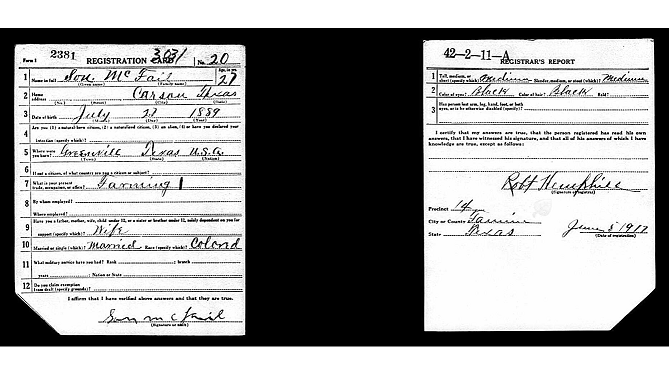 Form 1 2381 REGISTRATION CARD 3031 No. 20
1 Name in full Son. McFail Age, in yrs. 27
(Given name) (Family name)
2 Home address Carson Texas
(No.) (Street) (City) (State)
3 Date of birth July 27 1889
(Month) (Day) (Year)
4 Are you (1) a natural-born citizen, (2) a naturalized citizen, (3) an alien, (4) or have you declared your
intention (specify which)?
5 Where were you born? Greenville Texas U.S.A.
(Town) (State) (Nation)
6 If not a citizen, of what country are you a citizen or subject?
7 What is your present trade, occupation, or office? Farming
8 By whom employed?
Where employed?
9 Have you a father, mother, wife, child under 12, or a sister or brother under 12, solely dependent on you for
support (specify which)? Wife
10 Married or single (which)? Married Race (specify which)? Colord
11 What military service have you had? Rank ; branch
years ; Nation or State
12 Do you claim exemption from draft (specify grounds)?
I affirm that I have verified above answers and that they are true.
Son McFail
(Signature or mark)
42-2-11-A
REGISTRAR'S REPORT
1 Tall, medium, or short (specify which)? Medium Slender, medium, or stout (which)? Medium
2 Color of eyes? Black Color of hair? Black Bald?
3 Has person lost arm, leg, hand, foot, or both eyes, or is he otherwise disabled (specify)?
I certify that my answers are true, that the person registered has read his own
answers, that I have witnessed his signature, and that all of his answers of which I have
knowledge are true, except as follows:
Robt Hemphill
(Signature of registrar)
Precinct 14
City or County Fannin
State Texas June 5 1917
(Date of registration)